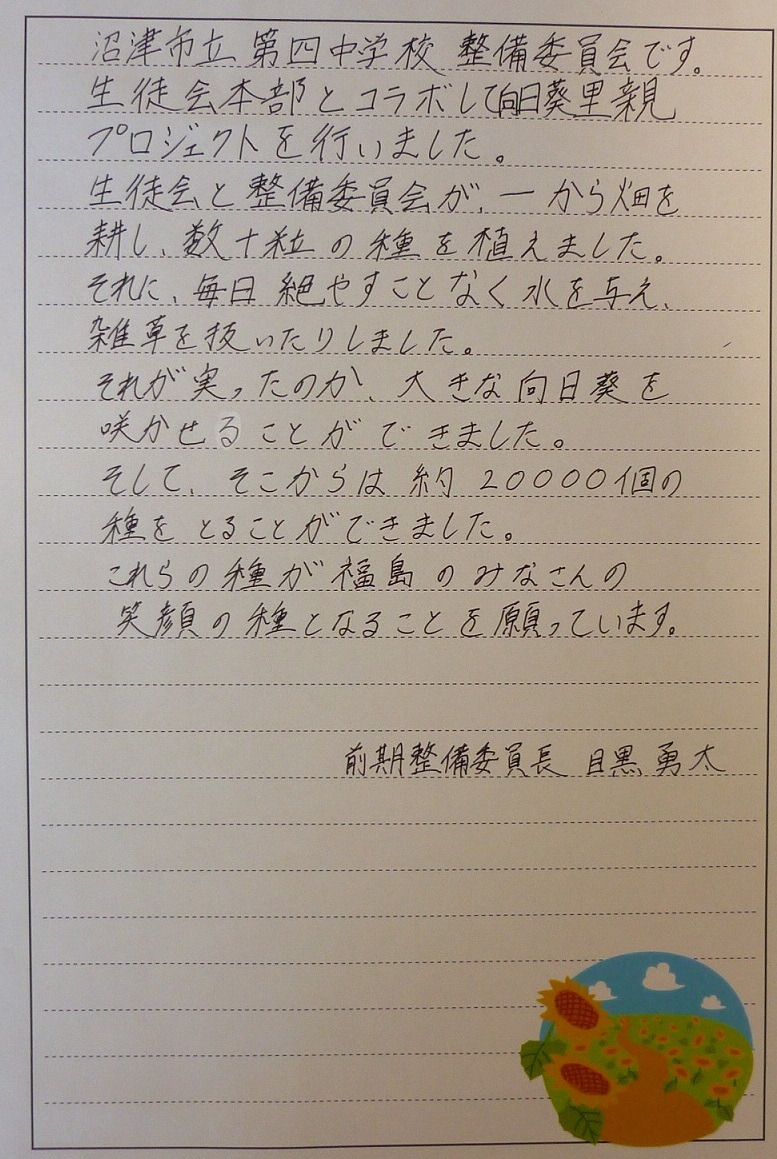 沼津市立 第四中学校 整備委員会です。
生徒会本部とコラボして向日葵里親
プロジェクトを行いました。
生徒会と整備委員会が、一から畑を
耕し、数十粒の種を植えました。
それに、毎日絶やすことなく水を与え、
雑草を抜いたりしました。
それが実ったのか、大きな向日葵を
咲かせることができました。
そして、そこからは約20000個の
種をとることができました。
これらの種が福島のみなさんの
笑顔の種となることを願っています。
前期整備委員長 目黒 勇太